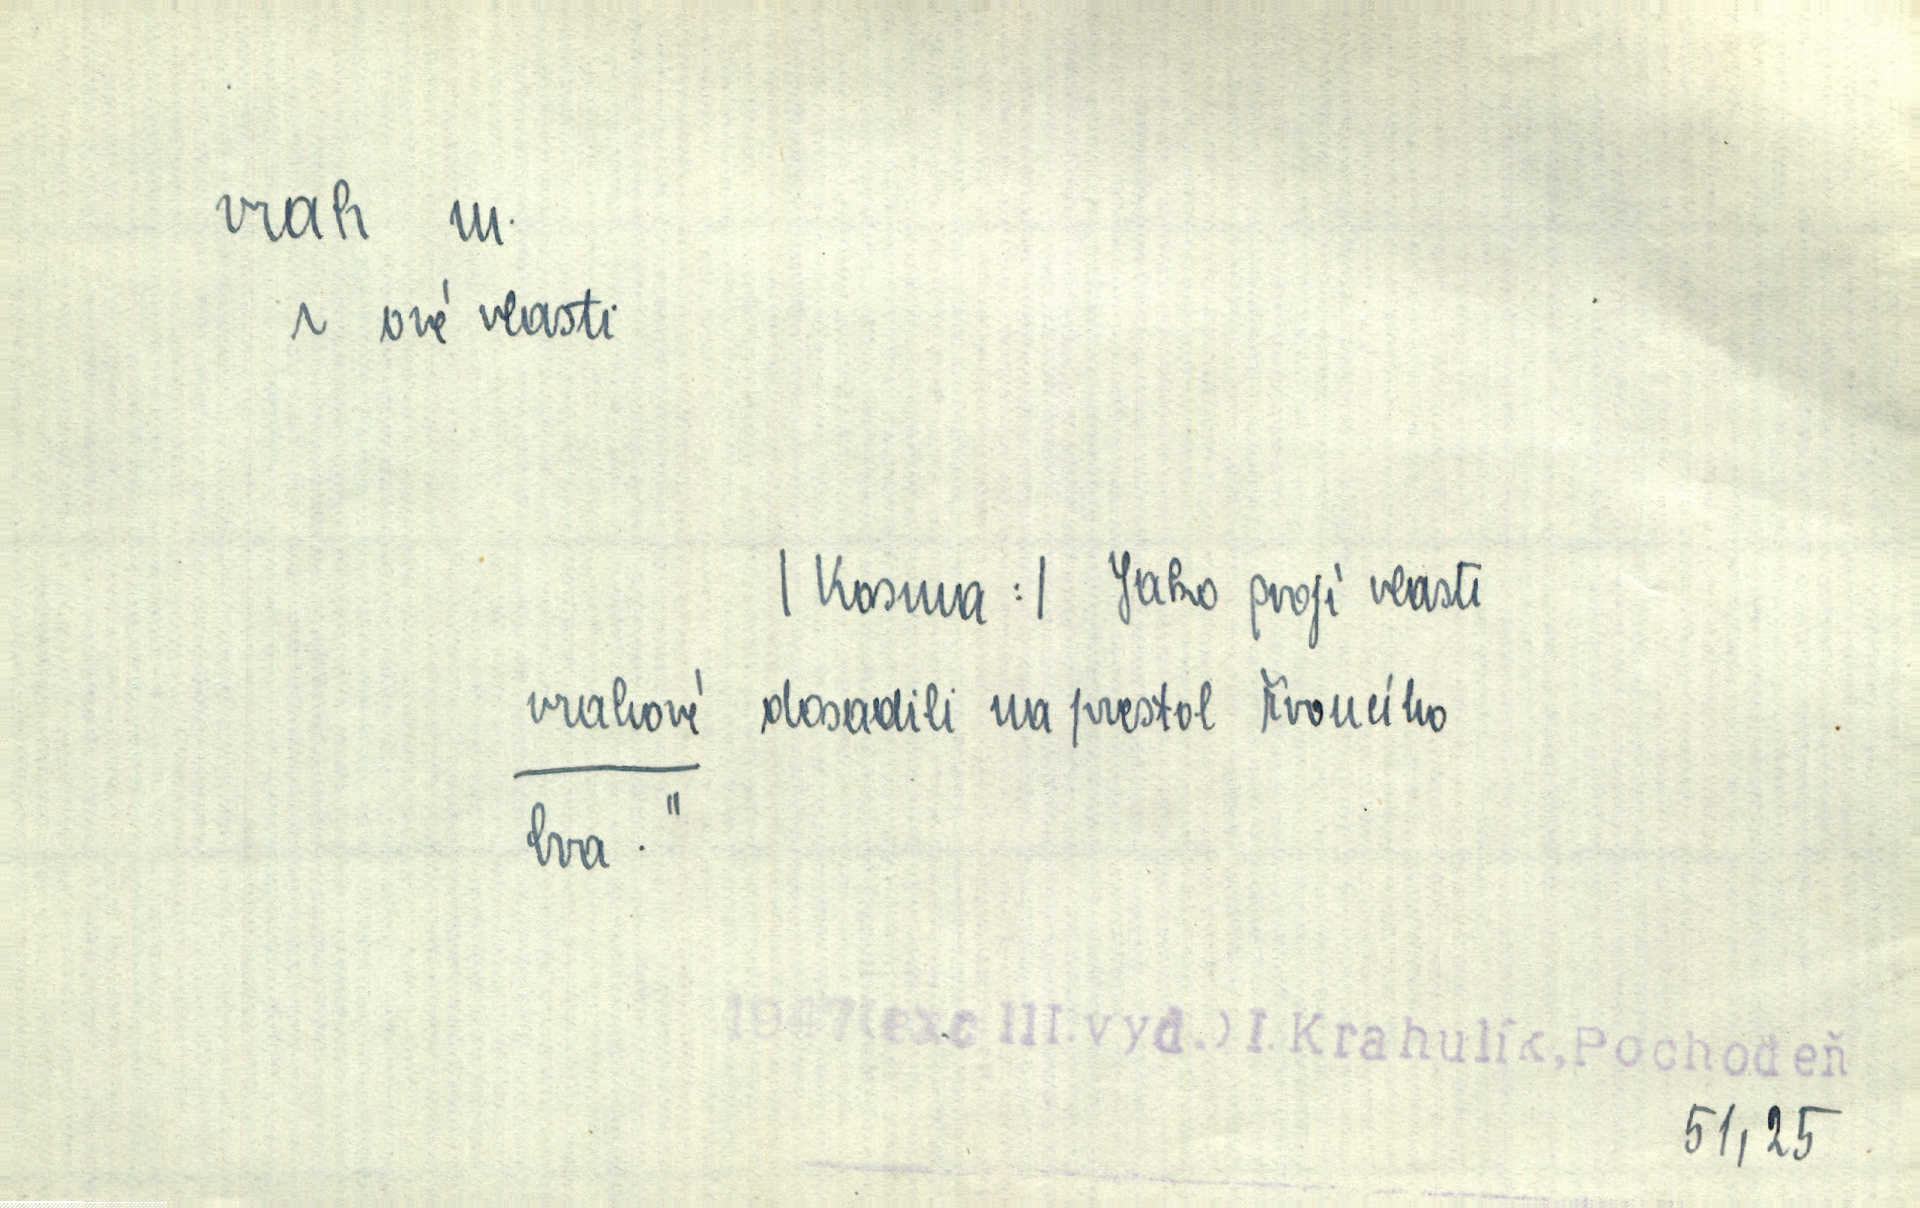 vrah m.
~ ové vlasti
/Kosma :/ Jako proji vlasti
vrahové dosadili na prestol řvoucího
lva."
1947(exc III.vyd.) I.Krahulík,Pochodeň
51,25